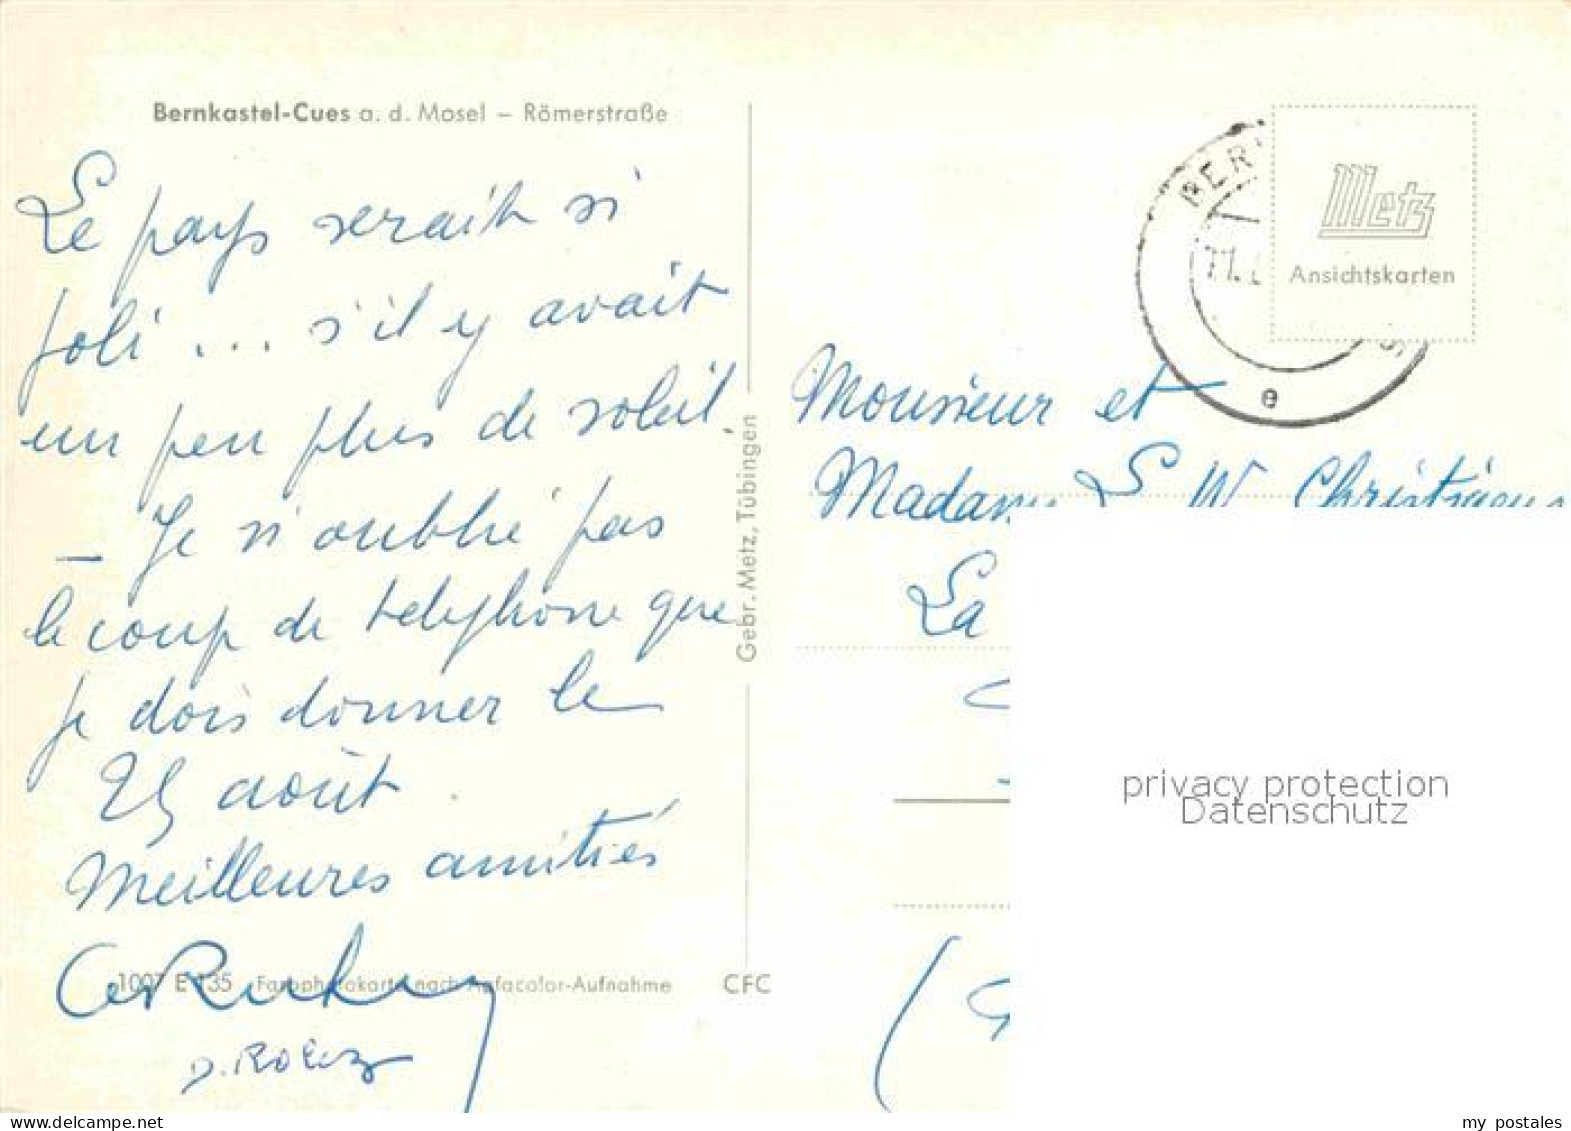 Bernkastel-Cues a. d. Mosel – Römerstraße
Le pays serait si
joli ... s'il y avait
un peu plus de soleil.
– Je n'oublie pas
le coup de telephone que
je dois donner le
25 août
Meilleures amitiés
1007 E 135 Farbphotokarte nach Agfacolor-Aufnahme
CFC
Gebr. Metz, Tübingen
Metz
Ansichtskarten
BER
11.
e
Monsieur et
Madame
La
privacy protection
Datenschutz
my postales